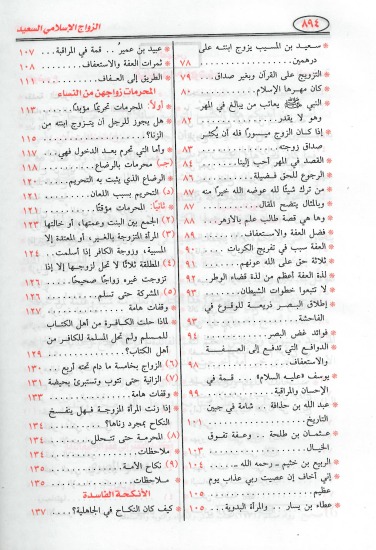 الزواج الإسلامي السعيد
٨٩٤
* سعيد بن المسيب يزوج ابنته على
درهمين ........ ٧٨
* التزويج على القرآن وبغير صداق .. ٧٩
* كان مهرها الإسلام ........ ٨٠
* النبي ﷺ يعاتب من يبالغ في المهر
وهو لا يقدر ........ ٨٢
* إذا كان الزوج ميسورًا فله أن يُكثر
صداق زوجته ........ ٨٣
* القصد في المهر أحب إلينا ........ ٨٤
* الرجوع للحق فضيلة ........ ٨٦
* من ترك شيئًا لله عوضه الله خيرًا منه ٨٧
* وبالمثال يتضح المقال ........ ٨٧
* وها هي قصة طالب علم بالأزهر .. ٨٨
* فضل العفة والاستعفاف ........ ٨٩
* العفة سبب في تفريج الكربات ... ٩٠
* ثلاثة حق على الله عونهم ........ ٩١
* لذة العفة أعظم من لذة قضاء الوطر. ٩٢
* لا تتبعوا خطوات الشيطان ........ ٩٣
* إطلاق البصر ذريعة للوقوع في
الفاحشة ........ ٩٣
* فوائد غض البصر ........ ٩٤
* الدوافع التي تدفع إلى العفة
والاستعفاف ........ ٩٨
* يوسف «عليه السلام» .. قمة في
الإحسان والمراقبة ........ ٩٩
* عبد الله بن حذافة .. شامة في جبين
التاريخ ........ ١٠١
* عثمان بن طلحة .. وعفة تفوق
الخيال ........ ١٠٣
* الربيع بن خثيم .. رحمه الله .. ١٠٤
* إني أخاف إن عصيت ربي عذاب يوم
عظيم ........ ١٠٥
* عطاء بن يسار .. والمرأة البدوية ... ١٠٥
* عبيد بن عمير .. قمة في المراقبة .. ١٠٧
* ثمرات العفة والاستعفاف ........ ١٠٨
* الطريق إلى العفاف ........ ١١١
المحرمات زواجهن من النساء
* أولاً: المحرمات تحريمًا مؤبدًا ........ ١١٣
* هل يجوز للرجل أن يتزوج ابنته من
الزنا؟ ........ ١١٥
* وأما التي تحرم بعد الدخول فهي .. ١١٧
* (جـ) محرمات بالرضاع ........ ١١٨
* الرضاع الذي يثبت به التحريم ..... ١٢٠
* (د) التحريم بسبب اللعان ........ ١٢١
* ثانيًا: المحرمات مؤقتًا ........ ١٢١
* (٢) الجمع بين البنت وعمتها، أو خالتها ١٢٣
* (٣) المرأة المتزوجة بالغير، أو المعتدة إلا
المسبية، وزوجة الكافر إذا أسلمت .. ١٢٤
* (٤) المطلقة ثلاثًا لا تحل لزوجها إلا إذا
تزوجت غيره زواجًا صحيحًا ........ ١٢٦
* (٥) المشركة حتى تسلم ........ ١٢٦
* وقفات هامة ........ ١٢٧
* لماذا حلت الكافرة من أهل الكتاب
للمسلم ولم تحل المسلمة للكافر من
أهل الكتاب؟ ........ ١٢٩
* (٦) الزواج بخامسة ما دام تحته أربع ... ١٣٠
* (٧) الزانية حتى تتوب وتستبرئ بحيضة ١٣١
* وقفات هامة ........ ١٣٣
* إذا زنت المرأة المتزوجة فهل ينفسخ
النكاح بمجرد زناها؟ ........ ١٣٤
* (٨) المحرمة حتى تتحلل ........ ١٣٤
* ملاحظات ........ ١٣٤
* (٩) نكاح الأمة ........ ١٣٥
* ملاحظات ........ ١٣٥
الأنكحة الفاسدة
* كيف كان النكاح في الجاهلية؟ ... ١٣٧